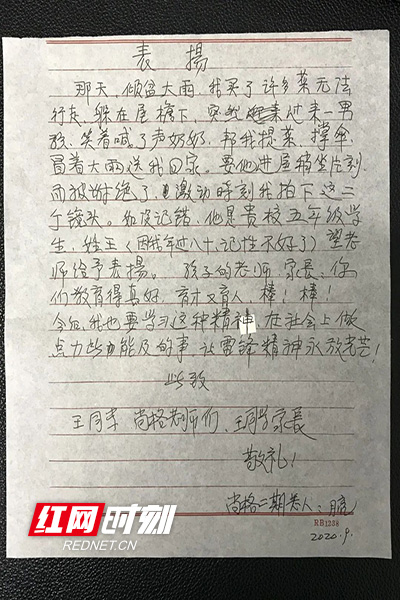 表揚
那天，倾盆大雨，我买了许多菜无法
行走，躲在屋檐下，突然过来一男
孩，笑着喊了声奶奶，帮我提菜，撑伞，
冒着大雨送我回家。要他进屋稍坐片刻，
而被谢绝了，激动时刻我拍下这二
个镜头。如没记错，他是贵校五年级学
生，姓王（因我年过八十，记性不好了）望老
师给予表揚。 孩子的老师 家长，你
们教育得真好，育才又育人，棒！棒！
今后，我也要学习这种精神，在社会上做
点力所能及的事，让雷锋精神永放光芒！
此致
王同学 尚格老师们、王同学家长
敬礼！
尚格二期老人：
RB1238
2020.9.
红网时刻
REDNET.CN